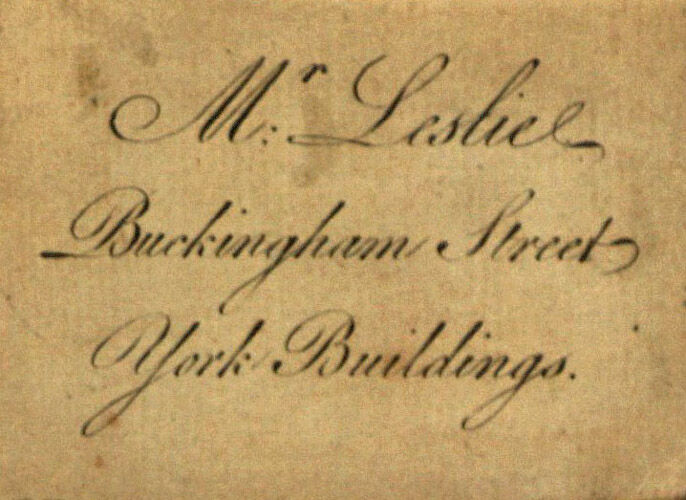 Mr: Leslie
Buckingham Street
York Buildings.